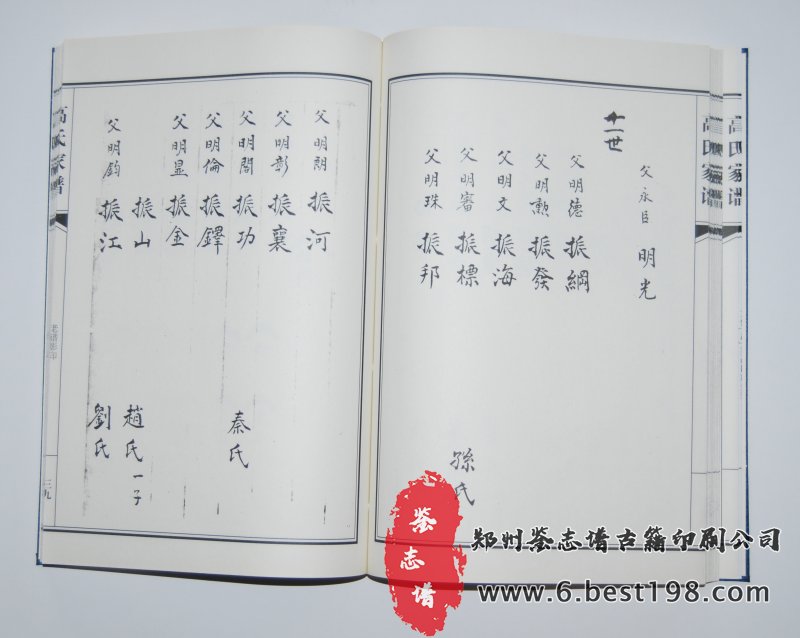 高氏家谱
高氏家谱
父永臣 明光
十一世
父明德 振綱
父明勲 振發
父明文 振海
父明審 振標 孫氏
父明珠 振邦
父明朗 振河
父明彰 振襄
父明閣 振功 秦氏
父明倫 振鐸
父明显 振金
振山 趙氏 一子
父明鈞 振江 劉氏
高氏家谱
老谱影印
三九
鉴志谱
郑州鉴志谱古籍印刷公司
www.6.best198.com